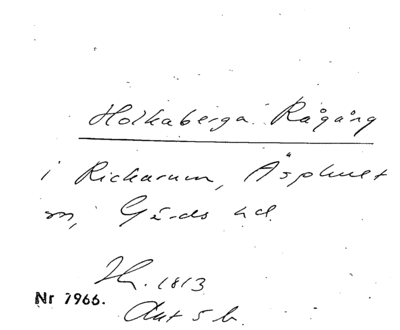 Holkaberga Rågång
i Rickarum, Äsphult
sn, Gärds hd.
1813
Nr 7966.